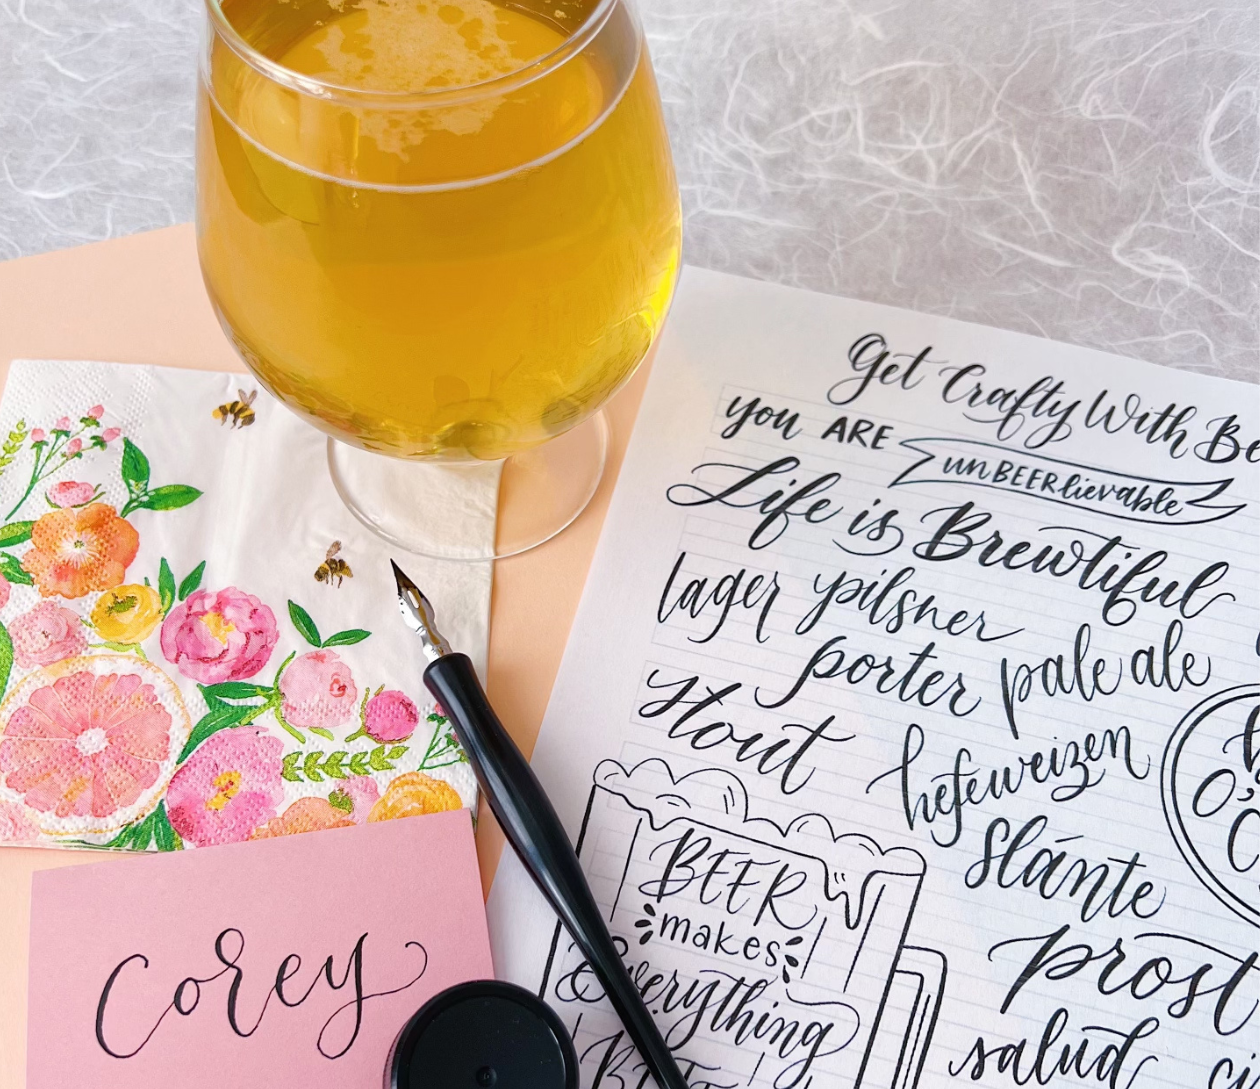 Get Crafty With Be
you ARE unBEERlievable
Life is Brewtiful
lager pilsner
porter pale ale
stout
hefeweizen
Sláinte
prost
salud
BEER
makes
Everything
Corey